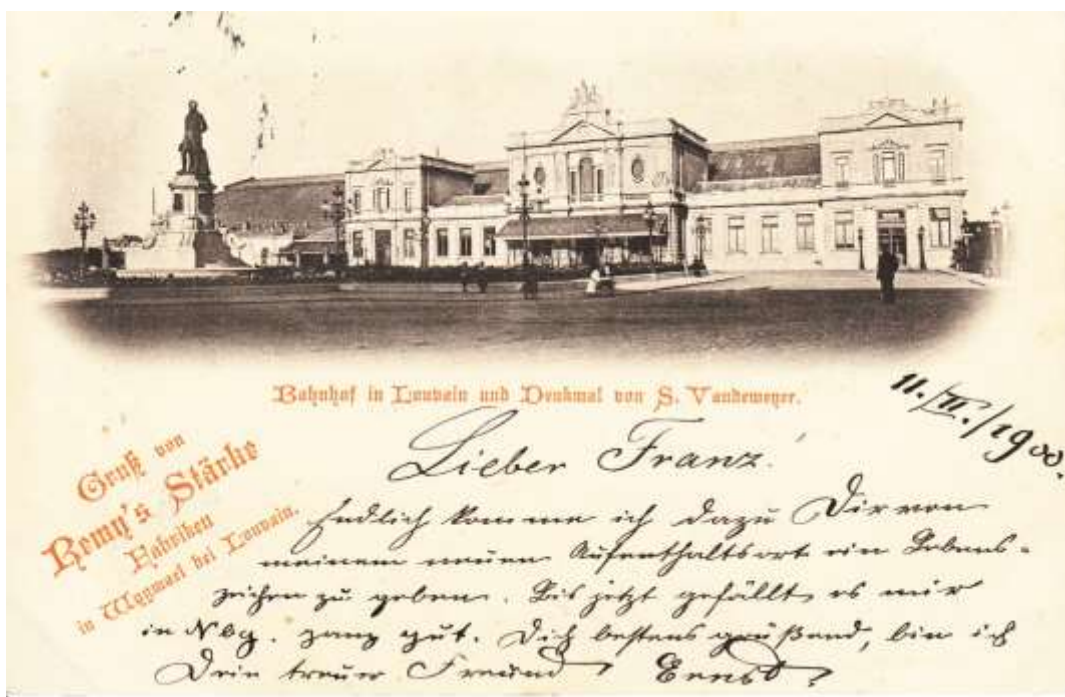 Bahnhof in Louvain und Denkmal von S. Vandeweyer.
11./II./1900.
Gruß von
Remy's Stärke
Fabriken
in Wygmael bei Louvain.
Lieber Franz!
Endlich komme ich dazu Dir von
meinem neuen Aufenthaltsort ein Lebens-
zeichen zu geben. Bis jetzt gefällt es mir
in Nbg. ganz gut. Dich bestens grüßend, bin ich
Dein treuer Freund Ernst